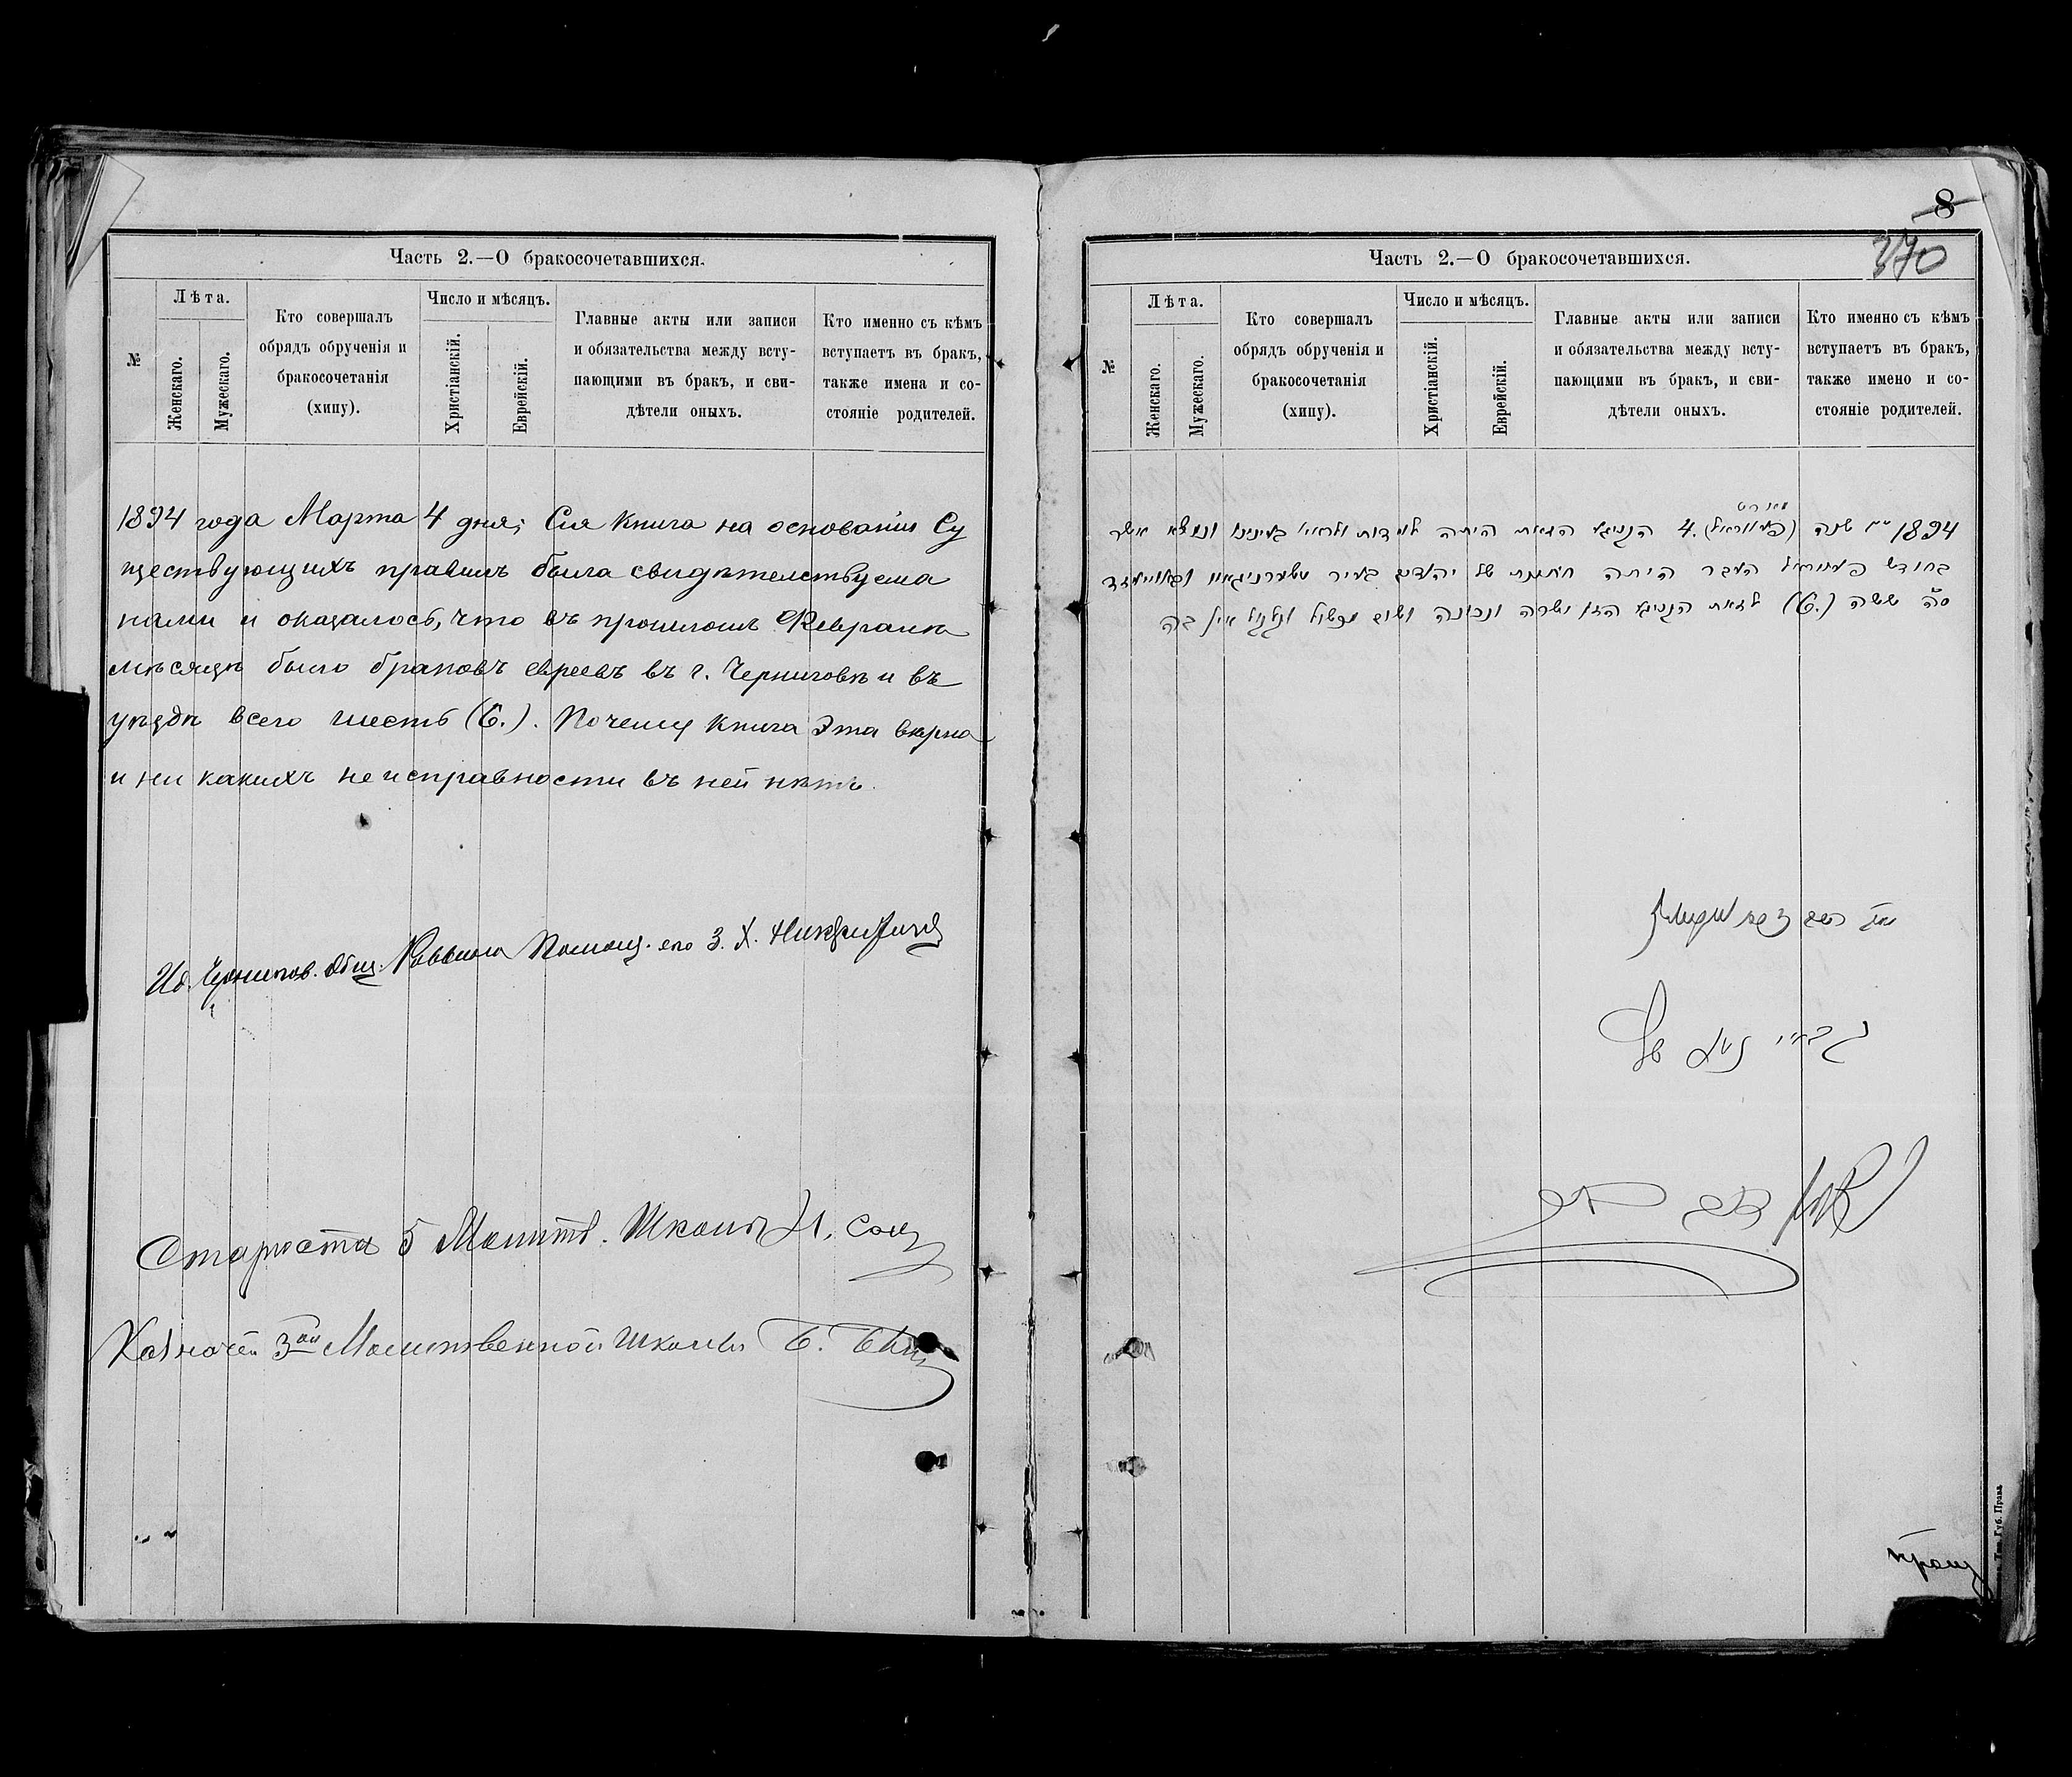 Часть 2.—О бракосочетавшихся.
№
Лѣта.
Женскаго.
Мужескаго.
Кто совершалъ
обрядъ обрученія и
бракосочетанія
(хипу).
Число и мѣсяцъ.
Христіанскій.
Еврейскій.
Главные акты или записи
и обязательства между всту-
пающими въ бракъ, и сви-
дѣтели оныхъ.
Кто именно съ кѣмъ
вступаетъ въ бракъ,
также имена и со-
стояніе родителей.
1894 года Марта 4 дня; Сія книга на основаніи Су
ществующихъ правилъ была свидѣтелствуема
нами и оказалось, что въ прошломъ Февралѣ
мѣсяцѣ было браковъ евреевъ въ г. Черниговѣ и въ
уѣздѣ всего шесть (6.). Почему книга эта вѣрна
и ни какихъ неисправности въ ней нѣтъ.
Чернигов. Общ. Раввина Помощ. его З. Х.
Староста 5 Молитв. Школы
Казначей 3ой Молитвенной школы Б.
8
370
Часть 2.—О бракосочетавшихся.
№
Лѣта.
Женскаго.
Мужескаго.
Кто совершалъ
обрядъ обрученія и
бракосочетанія
(хипу).
Число и мѣсяцъ.
Христіанскій.
Еврейскій.
Главные акты или записи
и обязательства между всту-
пающими въ бракъ, и сви-
дѣтели оныхъ.
Кто именно съ кѣмъ
вступаетъ въ бракъ,
также имено и со-
стояніе родителей.
מארט
1894 שנה (פעווראל) 4. הזאת היתה ונמצא אשר
בחודש פעווראל העבר היתה חתונת של יהודים בעיר טשערניגאוו
ס״ה ששה (6.) לזאת הזו ישרה ונכונה ושום מכשול אין בה
Тип. Губ. Прав.